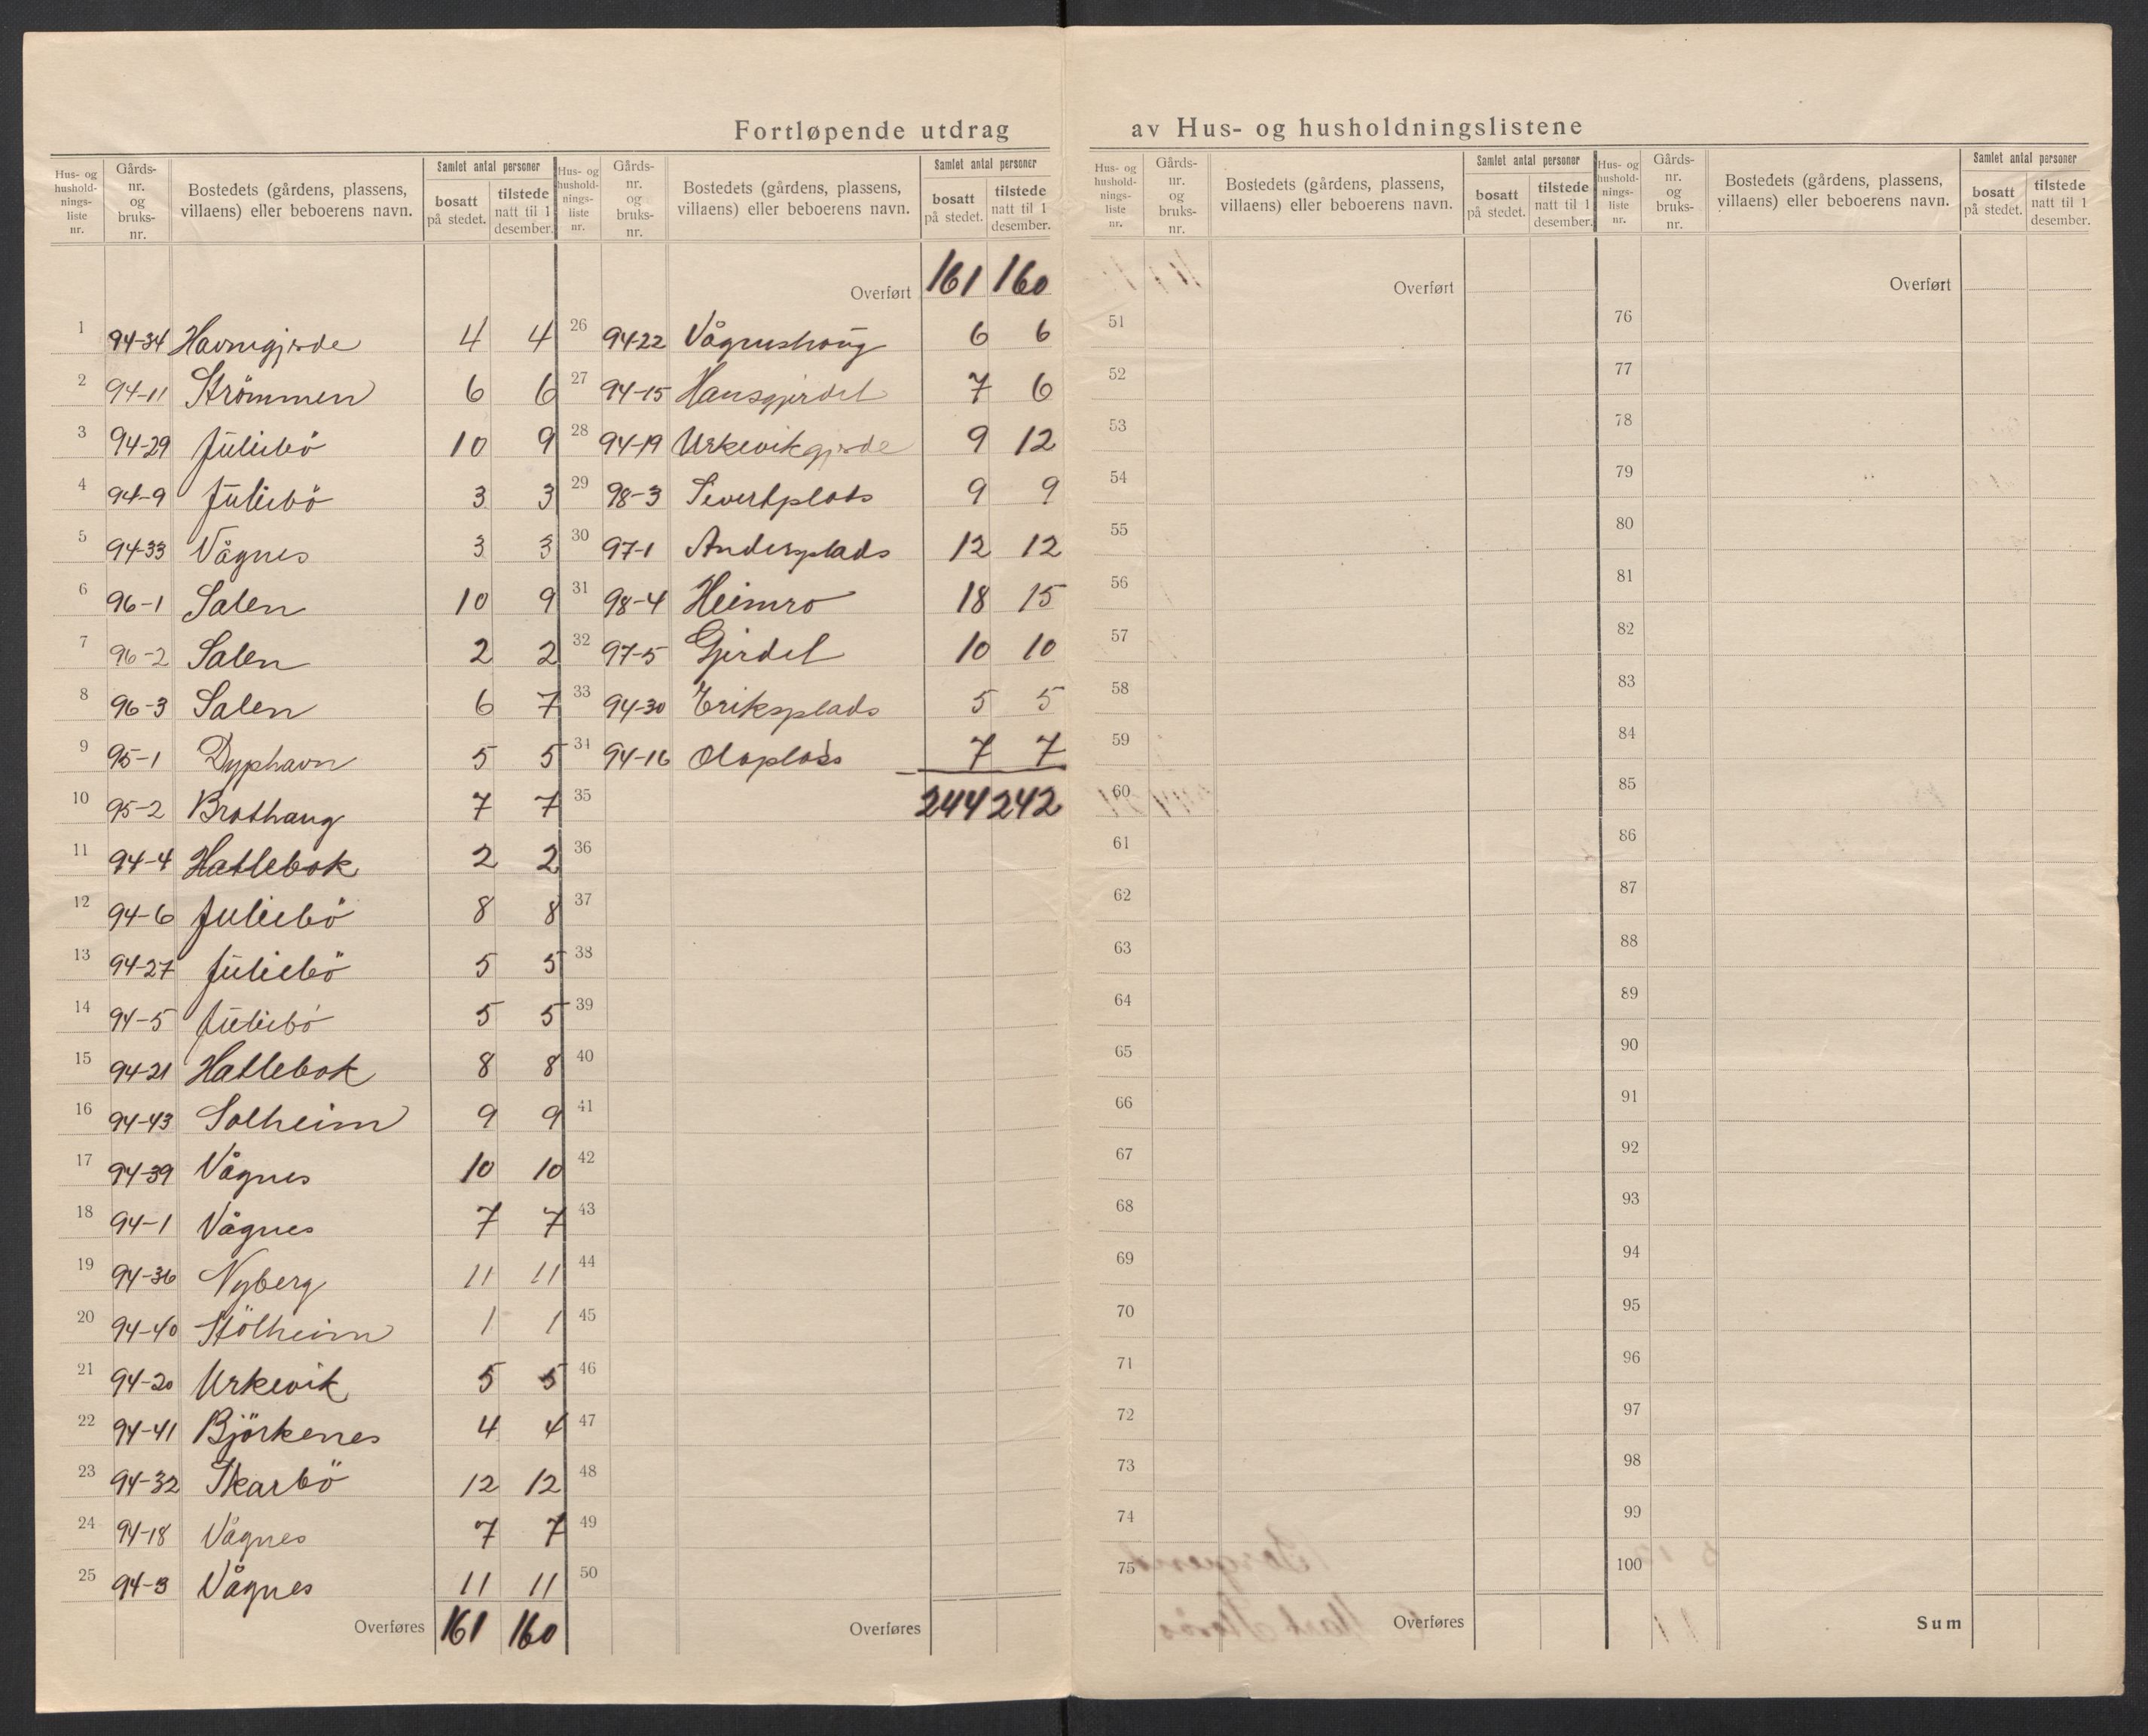 Fortløpende utdrag av Hus- og husholdningslistene
Hus- og hushold- nings- liste nr. Gårds- nr. og bruks- nr. Bostedets (gårdens, plassens, villaens) eller beboerens navn. Samlet antal personer bosatt på stedet. tilstede natt til 1 desember.
1 94-34 Havnegjerde 4 4
2 94-11 Strömmen 6 6
3 94-29 Juliebö 10 9
4 94-9 Juliebö 3 3
5 94-33 Vågnes 3 3
6 96-1 Salen 10 9
7 96-2 Salen 2 2
8 96-3 Salen 6 7
9 95-1 Dyphavn 5 5
10 95-2 Brathaug 7 7
11 94-4 Hatlebak 2 2
12 94-6 Juliebö 8 8
13 94-27 Juliebö 5 5
14 94-5 Juliebö 5 5
15 94-21 Hatlebak 8 8
16 94-43 Solheim 9 9
17 94-39 Vågnes 10 10
18 94-1 Vågnes 7 7
19 94-36 Nyberg 11 11
20 94-40 Stölheim 1 1
21 94-20 Urkevik 5 5
22 94-41 Björkenes 4 4
23 94-32 Skarbö 12 12
24 94-18 Vågnes 7 7
25 94-3 Vågnes 11 11
Overføres 161 160
Hus- og hushold- nings- liste nr. Gårds- nr. og bruks- nr. Bostedets (gårdens, plassens, villaens) eller beboerens navn. Samlet antal personer bosatt på stedet. tilstede natt til 1 desember.
Overført 161 160
26 94-22 Vågneshaug 6 6
27 94-15 Hansgjerdet 7 6
28 94-19 Urkevikgjerde 9 12
29 98-3 Sivertplads 9 9
30 97-1 Andersplads 12 12
31 98-4 Heimro 18 15
32 97-5 Gjerdet 10 10
33 94-30 Eriksplads 5 5
34 94-16 Olaplads 7 7
35 244 242
36
37
38
39
40
41
42
43
44
45
46
47
48
49
50
Overføres
Hus- og hushold- nings- liste nr. Gårds- nr. og bruks- nr. Bostedets (gårdens, plassens, villaens) eller beboerens navn. Samlet antal personer bosatt på stedet. tilstede natt til 1 desember.
Overført
51
52
53
54
55
56
57
58
59
60
61
62
63
64
65
66
67
68
69
70
71
72
73
74
75
Overføres
Hus- og hushold- nings- liste nr. Gårds- nr. og bruks- nr. Bostedets (gårdens, plassens, villaens) eller beboerens navn. Samlet antal personer bosatt på stedet. tilstede natt til 1 desember.
Overført
76
77
78
79
80
81
82
83
84
85
86
87
88
89
90
91
92
93
94
95
96
97
98
99
100
Sum